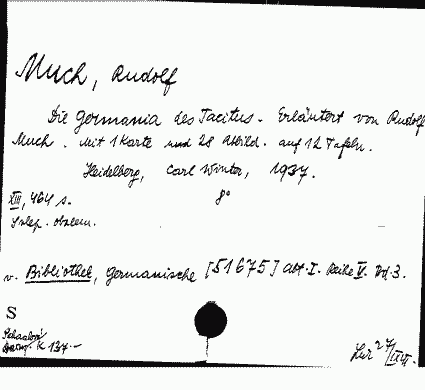 Much, Rudolf
Die Germania des Tacitus. Erläutert von Rudolf
Much. Mit 1 Karte und 28 Abbild. auf 12 Tafeln.
Heidelberg, Carl Winter, 1937.
XIII, 464 s. 8°
v. Bibliothek, Germanische [51675] Abt. I. Reihe V. Bd. 3.
S
K 137.—